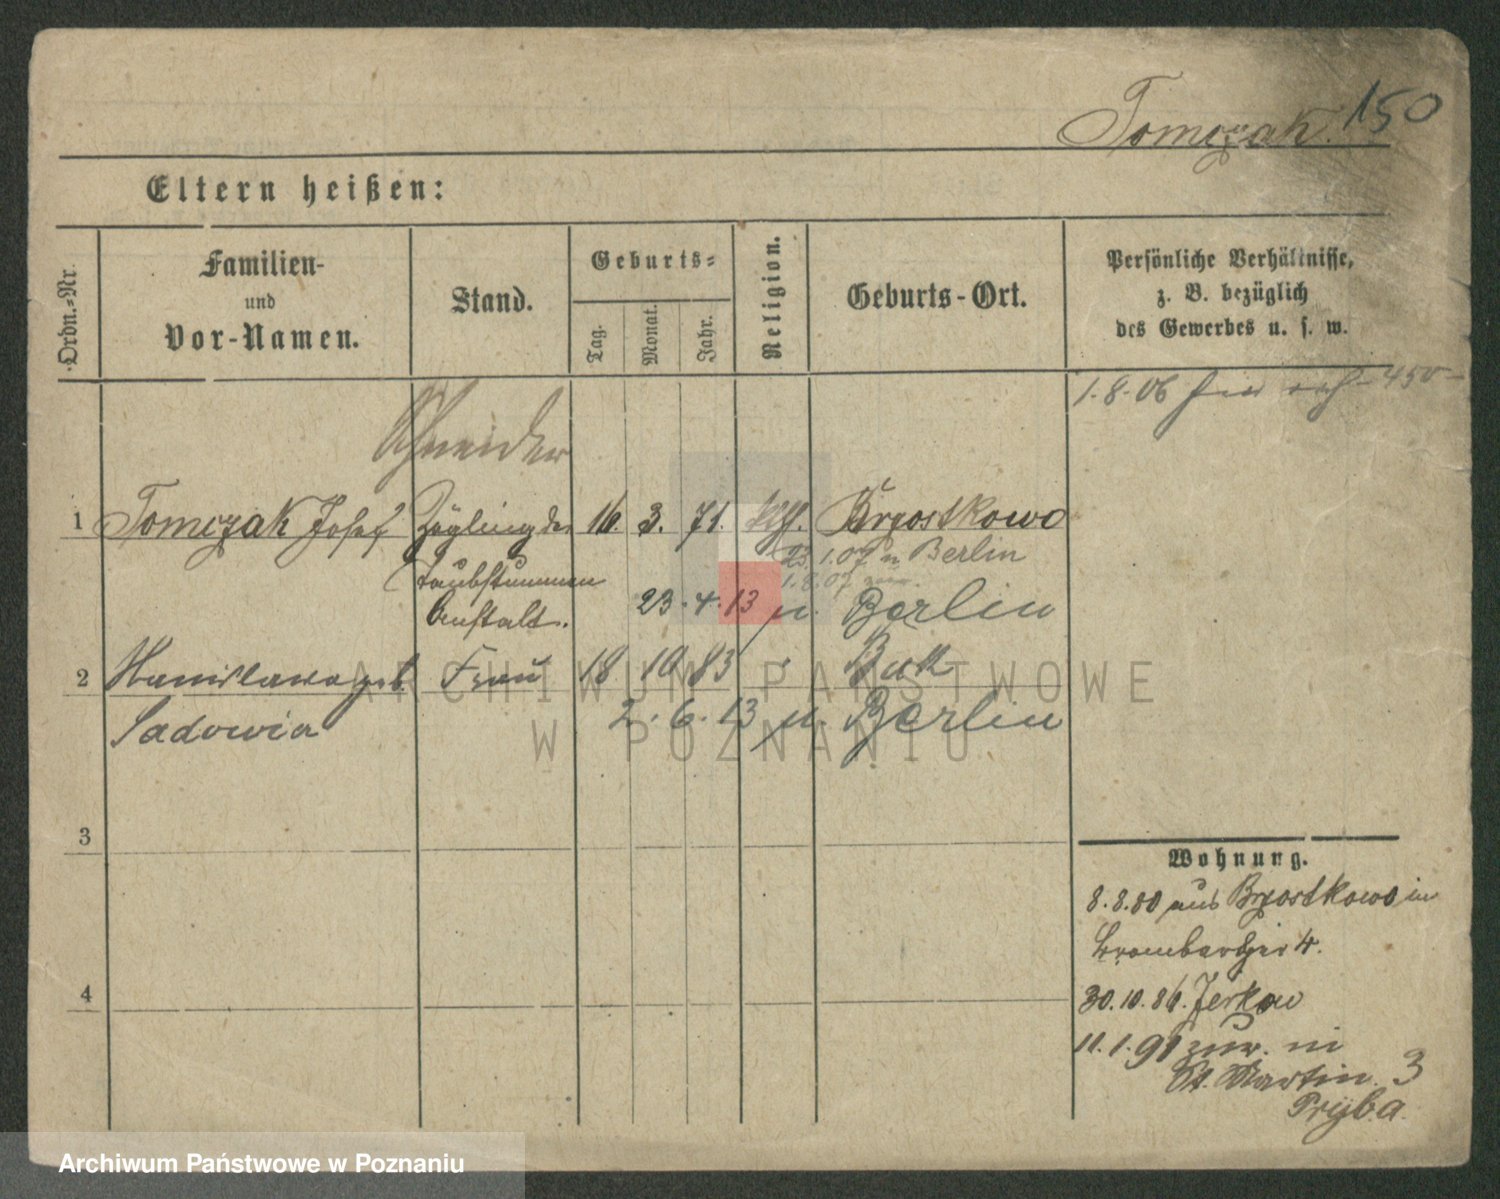 Tomczak. 150
Eltern heißen:
Ordn.-Nr.
Familien-
und
Vor-Namen.
Stand.
Geburts-
Tag.
Monat.
Jahr.
Religion.
Geburts-Ort.
Persönliche Verhältnisse,
z. B. bezüglich
des Gewerbes u. s. w.
1.8.06 450
Schneider
1 Tomczak Josef Zögling der 16. 3. 71. kth. Brzostkowo
23.1.07 n Berlin
Taubstummen 1.8.07 zur.
Anstalt. 23.4.13 n. Berlin
2 Stanislawa geb. Frau 18 10 83 " Buk
Sadowia 2.6.13 n. Berlin
3
4
Wohnung.
8.8.80 aus Brzostkowo in
4.
30.10.86. Jerkow
11.1.91 zur. in
St. Martin 3
Pryba
ARCHIWUM PAŃSTWOWE
W POZNANIU
Archiwum Państwowe w Poznaniu